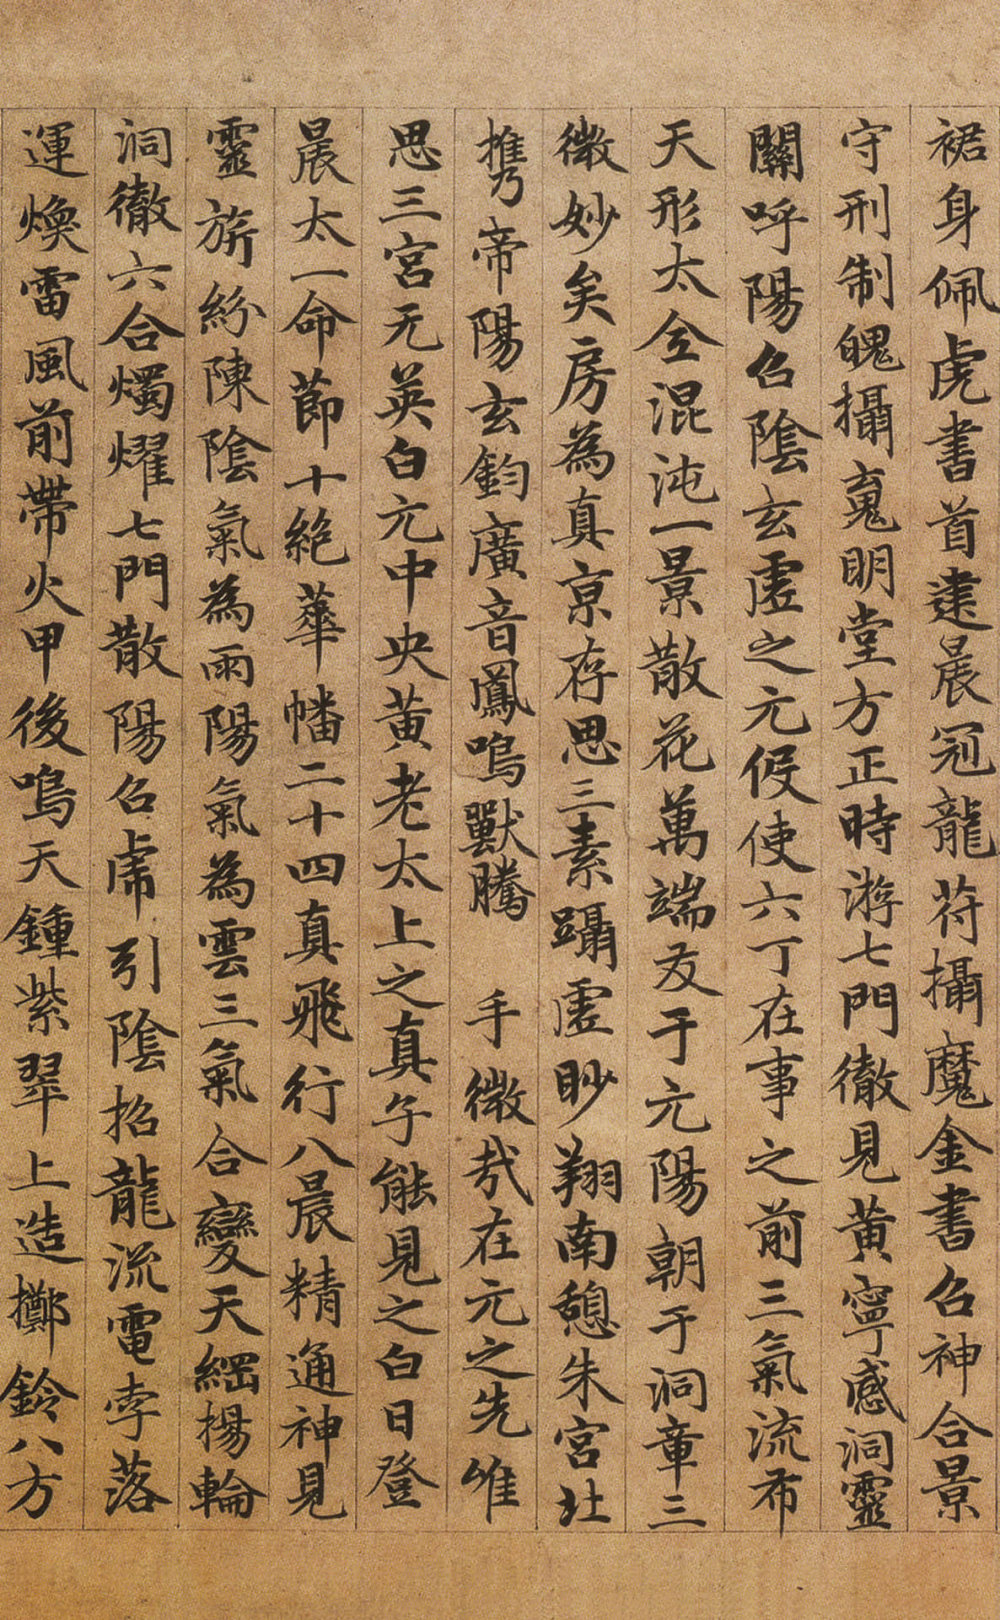 裙身佩虎書首建晨冠龍苻攝魔金書召神合景
守刑制魄攝嵬明堂方正時游七門徹見黃寧感洞靈
關呼陽召陰玄虛之元伇使六丁在事之前三氣流布
天形太仝混沌一景散花萬端友于元陽朝于洞章三
微妙矣房為真京存思三素躡虛眇翔南憩朱宮北
㩗帝陽玄鈞廣音鳳鳴獸騰 手微哉在元之先惟
思三宮无英白元中央黃老太上之真乍能見之白日登
晨太一命節十絕華幡二十四真飛行八晨精通神見
靈旂紛陳陰氣為雨陽氣為雲三氣合變天綱楊輪
洞徹六合燭燿七門散陽召虎引陰招龍流電孛落
運煥雷風前帶火甲後鳴天鍾紫翠上造擲鈴八方